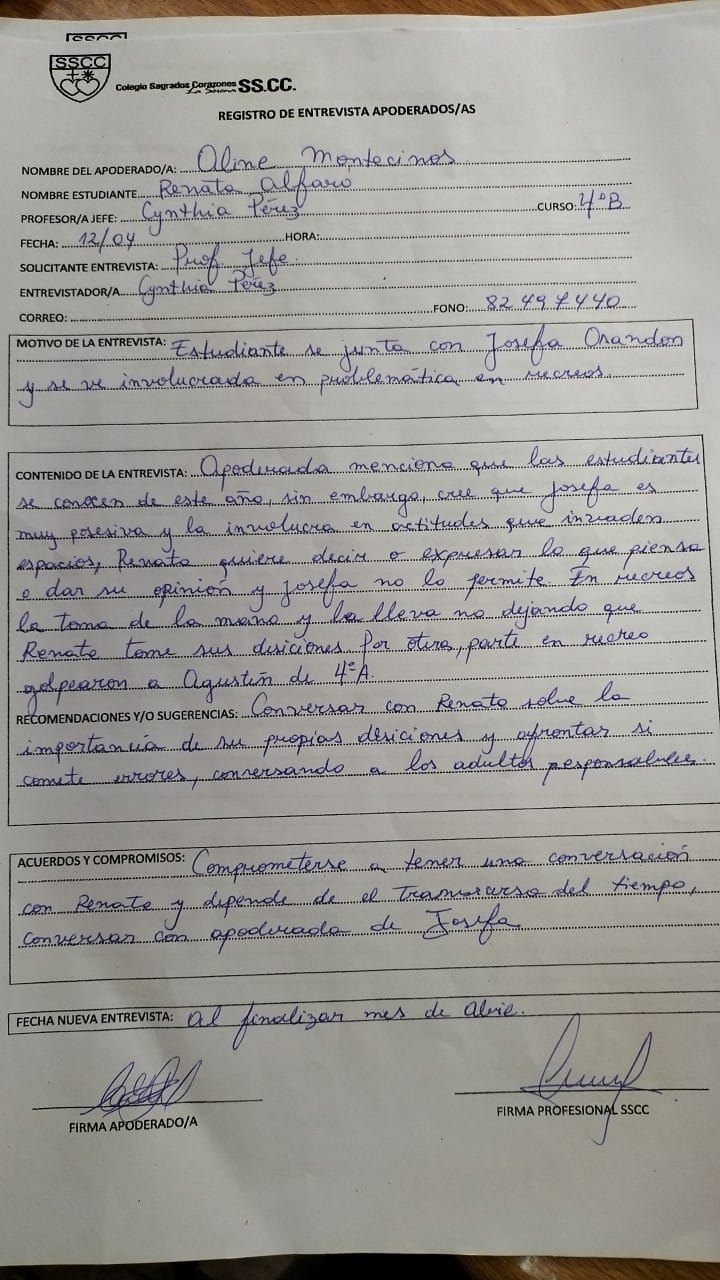 SSCC
Colegio Sagrados Corazones SS.CC.
La Serena
REGISTRO DE ENTREVISTA APODERADOS/AS
NOMBRE DEL APODERADO/A: Aline Montecinos
NOMBRE ESTUDIANTE Renata Alfaro
PROFESOR/A JEFE: Cynthia Pérez CURSO: 4°B
FECHA: 12/04 HORA:
SOLICITANTE ENTREVISTA: Prof. Jefe.
ENTREVISTADOR/A Cynthia Pérez
CORREO: FONO: 82497440
MOTIVO DE LA ENTREVISTA: Estudiante se junta con Josefa Osandon
y se ve involucrada en problemática en recreos
CONTENIDO DE LA ENTREVISTA: Apoderada menciona que las estudiantes
se conocen de este año, sin embargo, cree que Josefa es
muy posesiva y la involucra en actitudes que invaden
espacios, Renata quiere decir o expresar lo que piensa
o dar su opinión y Josefa no lo permite. En recreos
la toma de la mano y la lleva no dejando que
Renata tome sus desiciones Por otra parte en recreo
golpearon a Agustín de 4°A.
RECOMENDACIONES Y/O SUGERENCIAS: Conversar con Renata sobre la
importancia de su propias desiciones y afrontar si
comete errores, conversando a los adultos responsables.
ACUERDOS Y COMPROMISOS: Comprometerse a tener una conversación
con Renata y depende de el transcurso del tiempo,
conversar con apoderada de Josefa
FECHA NUEVA ENTREVISTA: al finalizar mes de
FIRMA APODERADO/A
FIRMA PROFESIONAL SSCC